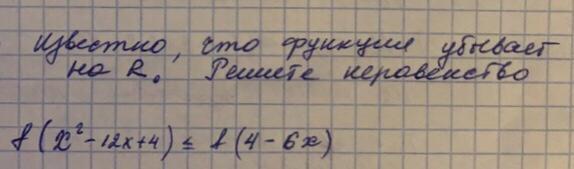 Известно, что функция убывает
на R. Решите неравенство
f(x²-12x+4) ≤ f(4-6x)